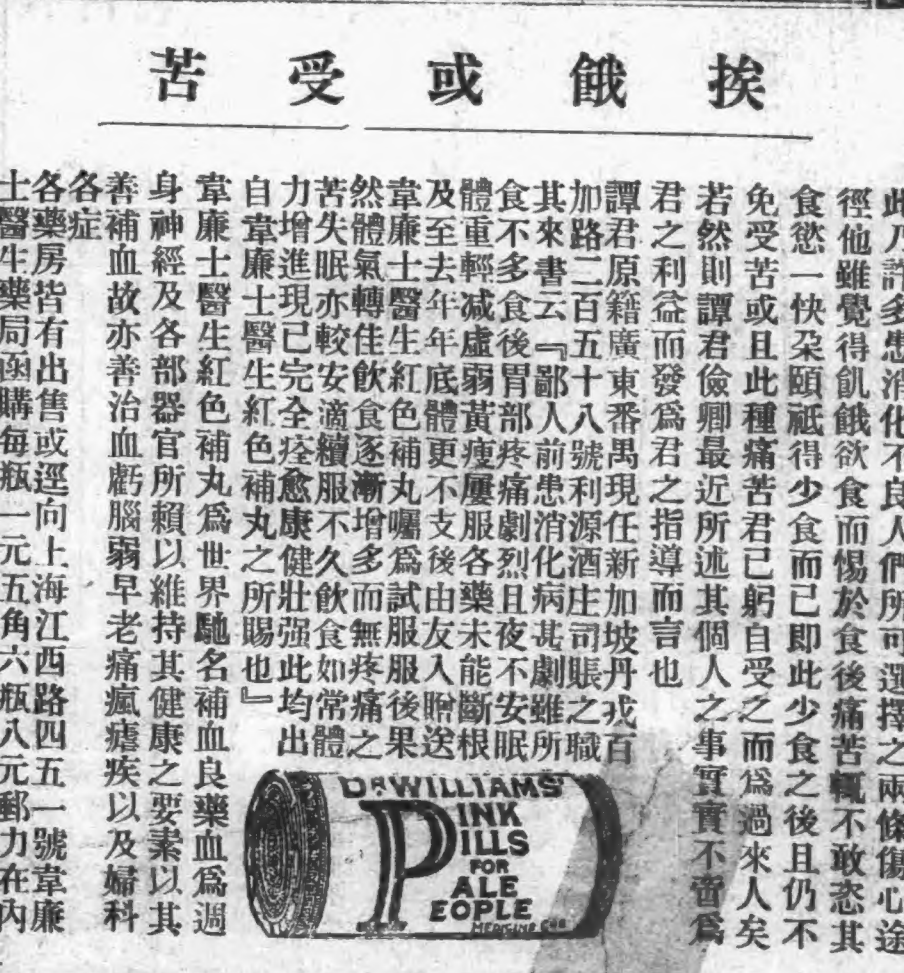 挨餓或受苦
此乃許多患消化不良人們所可選擇之兩條傷心途
徑他雖覺得飢餓欲食而惕於食後痛苦輒不敢恣其
食慾一快朶頤祇得少食而已即此少食之後且仍不
免受苦或且此種痛苦君已躬自受之而爲過來人矣
若然則譚君儉卿最近所述其個人之事實實不啻爲
君之利益而發爲君之指導而言也
譚君原籍廣東番禺現任新加坡丹戎百
加路二百五十八號利源酒庄司賬之職
其來書云『鄙人前患消化病甚劇雖所
食不多食後胃部疼痛劇烈且夜不安眠
體重輕減虛弱黃瘦屢服各藥未能斷根
及至去年年底體更不支後由友人贈送
韋廉士醫生紅色補丸囑爲試服服後果
然體氣轉佳飲食逐漸增多而無疼痛之
苦失眠亦較安適續服不久飲食如常體
力增進現已完全痊愈康健壯强此均出
自韋廉士醫生紅色補丸之所賜也』
韋廉士醫生紅色補丸爲世界馳名補血良藥血爲週
身神經及各部器官所賴以維持其健康之要素以其
善補血故亦善治血虧腦弱早老痛瘋瘧疾以及婦科
各症
各藥房皆有出售或逕向上海江西路四五一號韋廉
士醫生藥局函購每瓶一元五角六瓶八元郵力在內
DR WILLIAMS'
PINK
PILLS
FOR
PALE
PEOPLE
MEDICINE